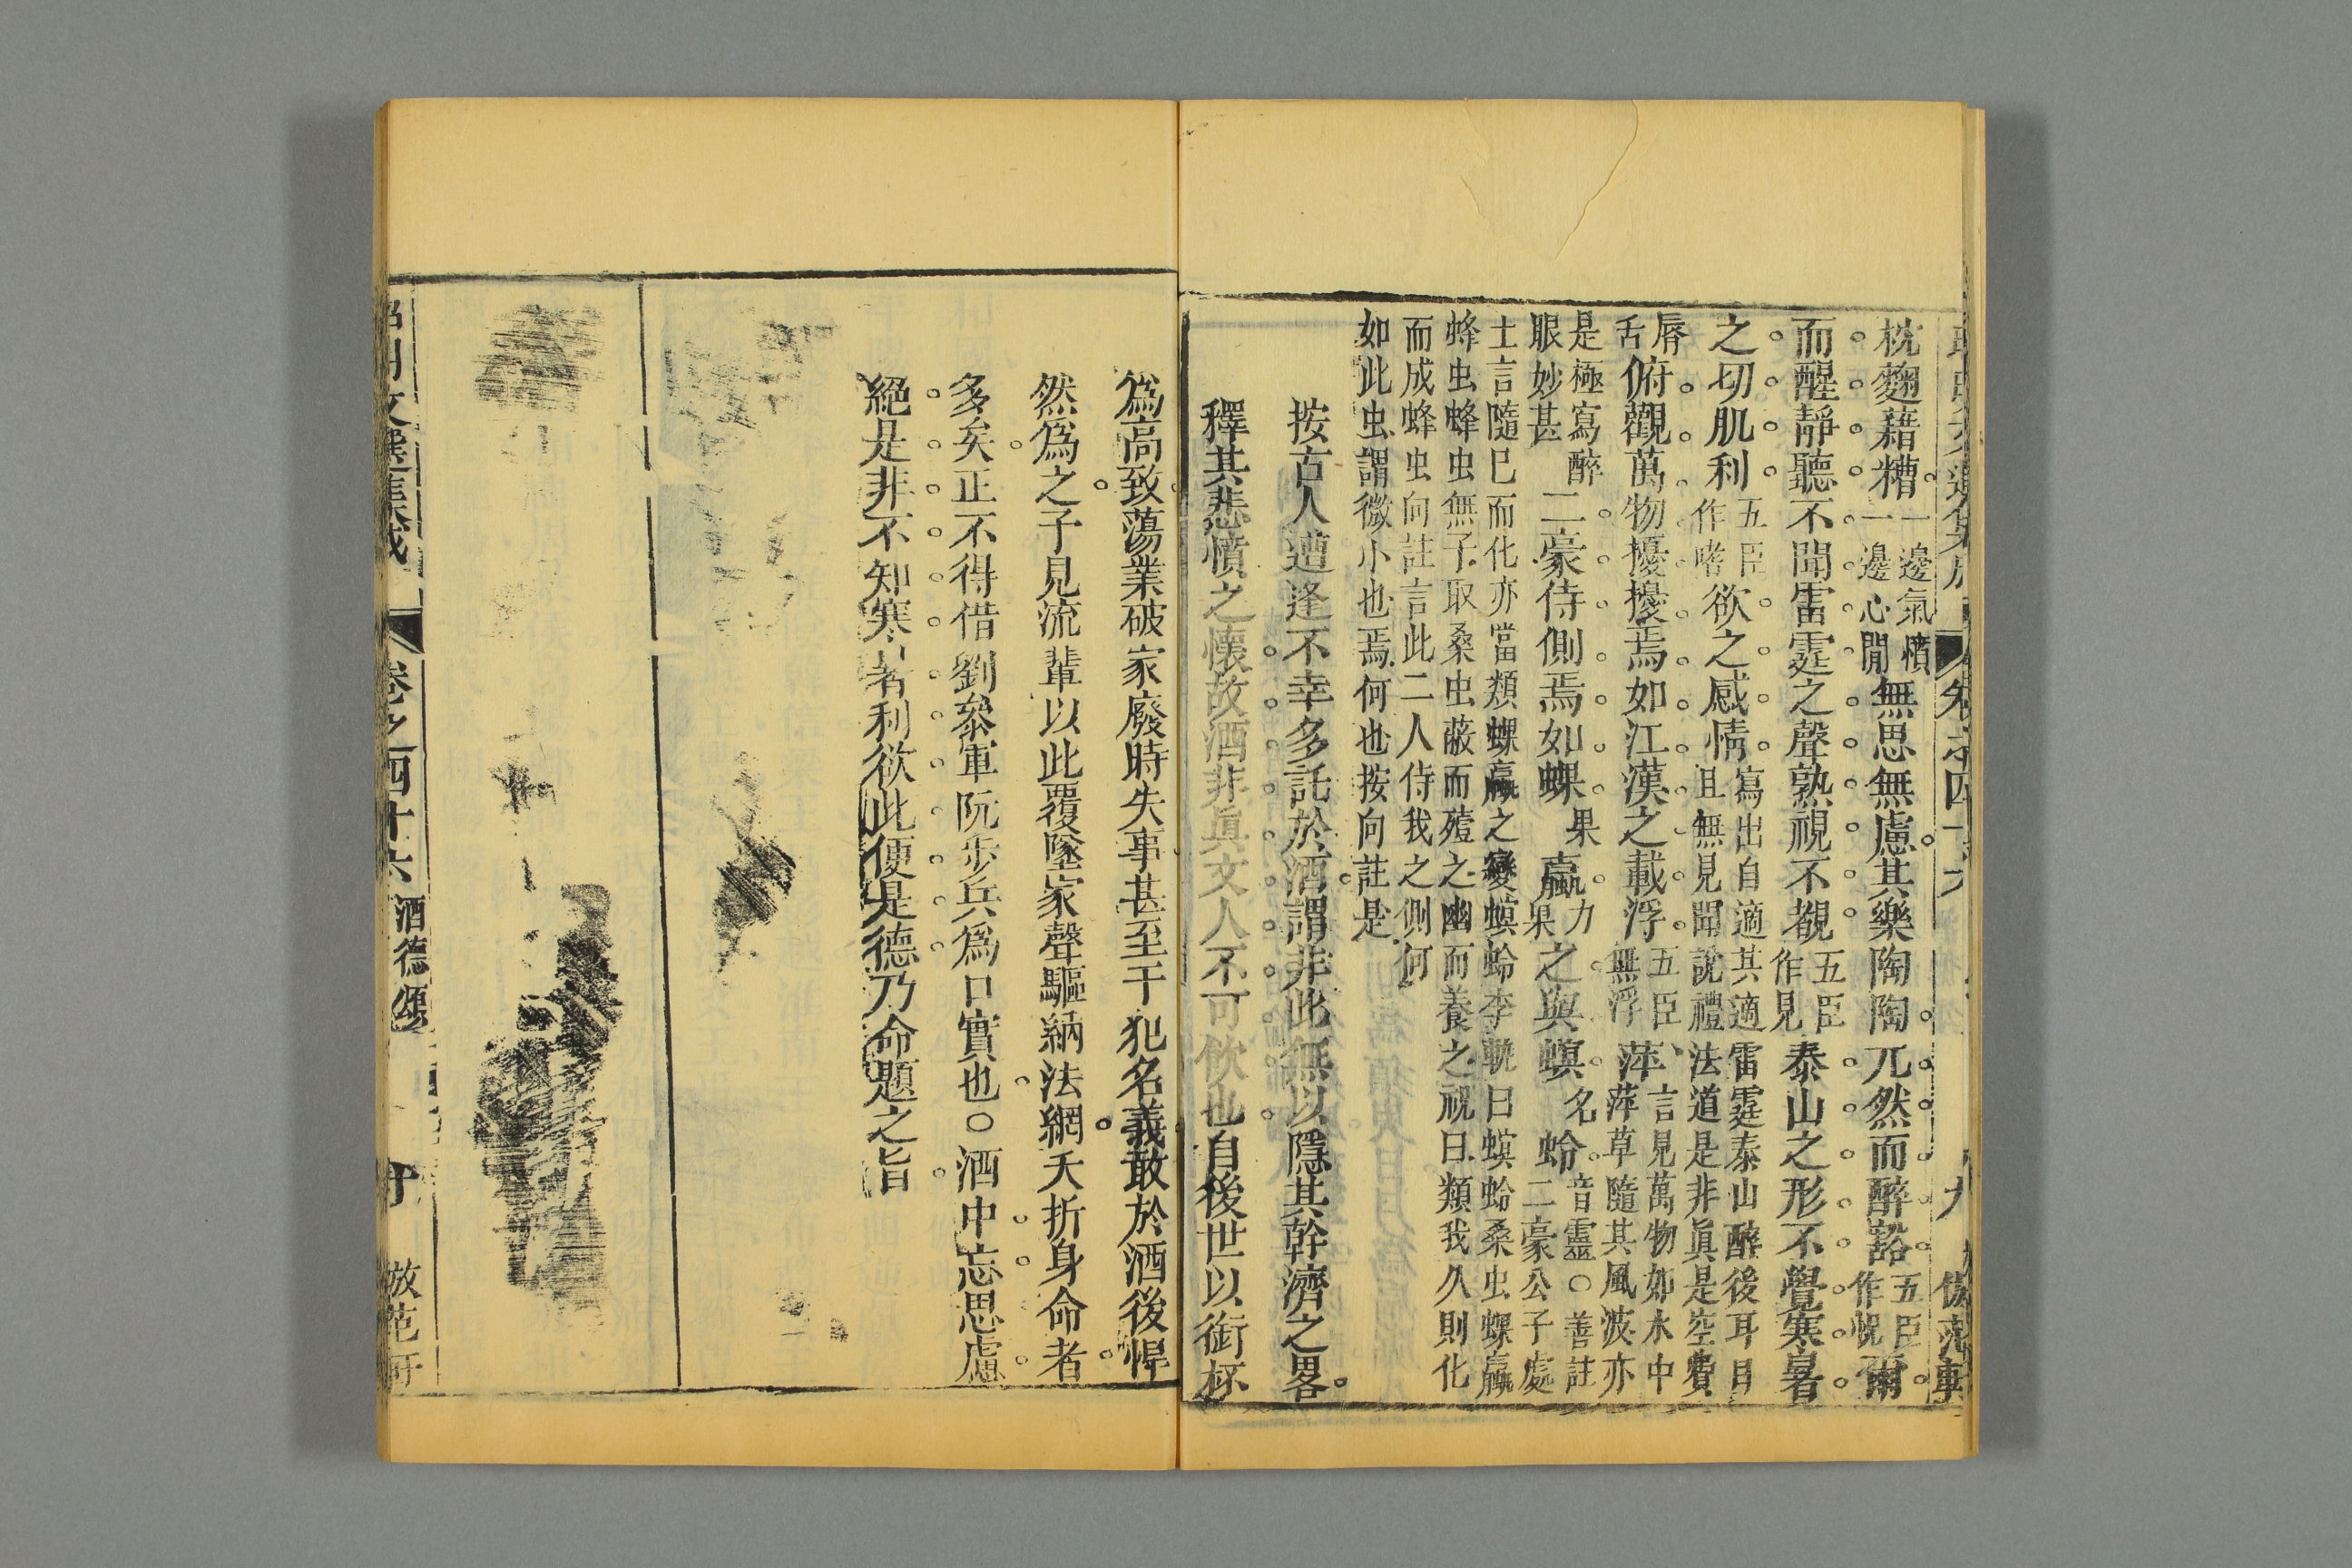 枕麴藉糟一邊氣憤一邊心閒無思無慮其樂陶陶兀然而醉豁五臣作怳爾
而醒靜聽不聞雷霆之聲熟視不覩五臣作見泰山之形不覺寒暑
之切肌利五臣作嗜欲之感情寫出自適其適雷霆泰山醉後耳目且無見聞說禮法道是非眞是空費
脣舌俯觀萬物擾擾焉如江漢之載浮五臣無浮萍言見萬物如水中萍草隨其風波亦
是極寫醉眼妙甚二豪侍側焉如蜾果蠃力果之與螟名蛉音靈○善註二豪公子處
士言隨已而化亦當類蜾蠃之變螟蛉李軌曰螟蛉桑虫蜾蠃
蜂虫蜂虫無子取桑虫蔽而殪之幽而養之祝曰類我久則化
而成蜂虫向註言此二人侍我之側何
如此虫謂微小也焉何也按向註是
按古人遭逢不幸多託於酒謂非此無以隱其幹濟之畧
釋其悲憤之懷故酒非眞文人不可飲也自後世以銜杯
爲高致蕩業破家廢時失事甚至干犯名義敢於酒後悍
然爲之子見流輩以此覆墜家聲驅納法網夭折身命者
多矣正不得借劉叅軍阮步兵爲口實也○酒中忘思慮
絕是非不知寒暑利欲此便是德乃命題之旨
昭明文選集成 卷之四十六 酒德頌